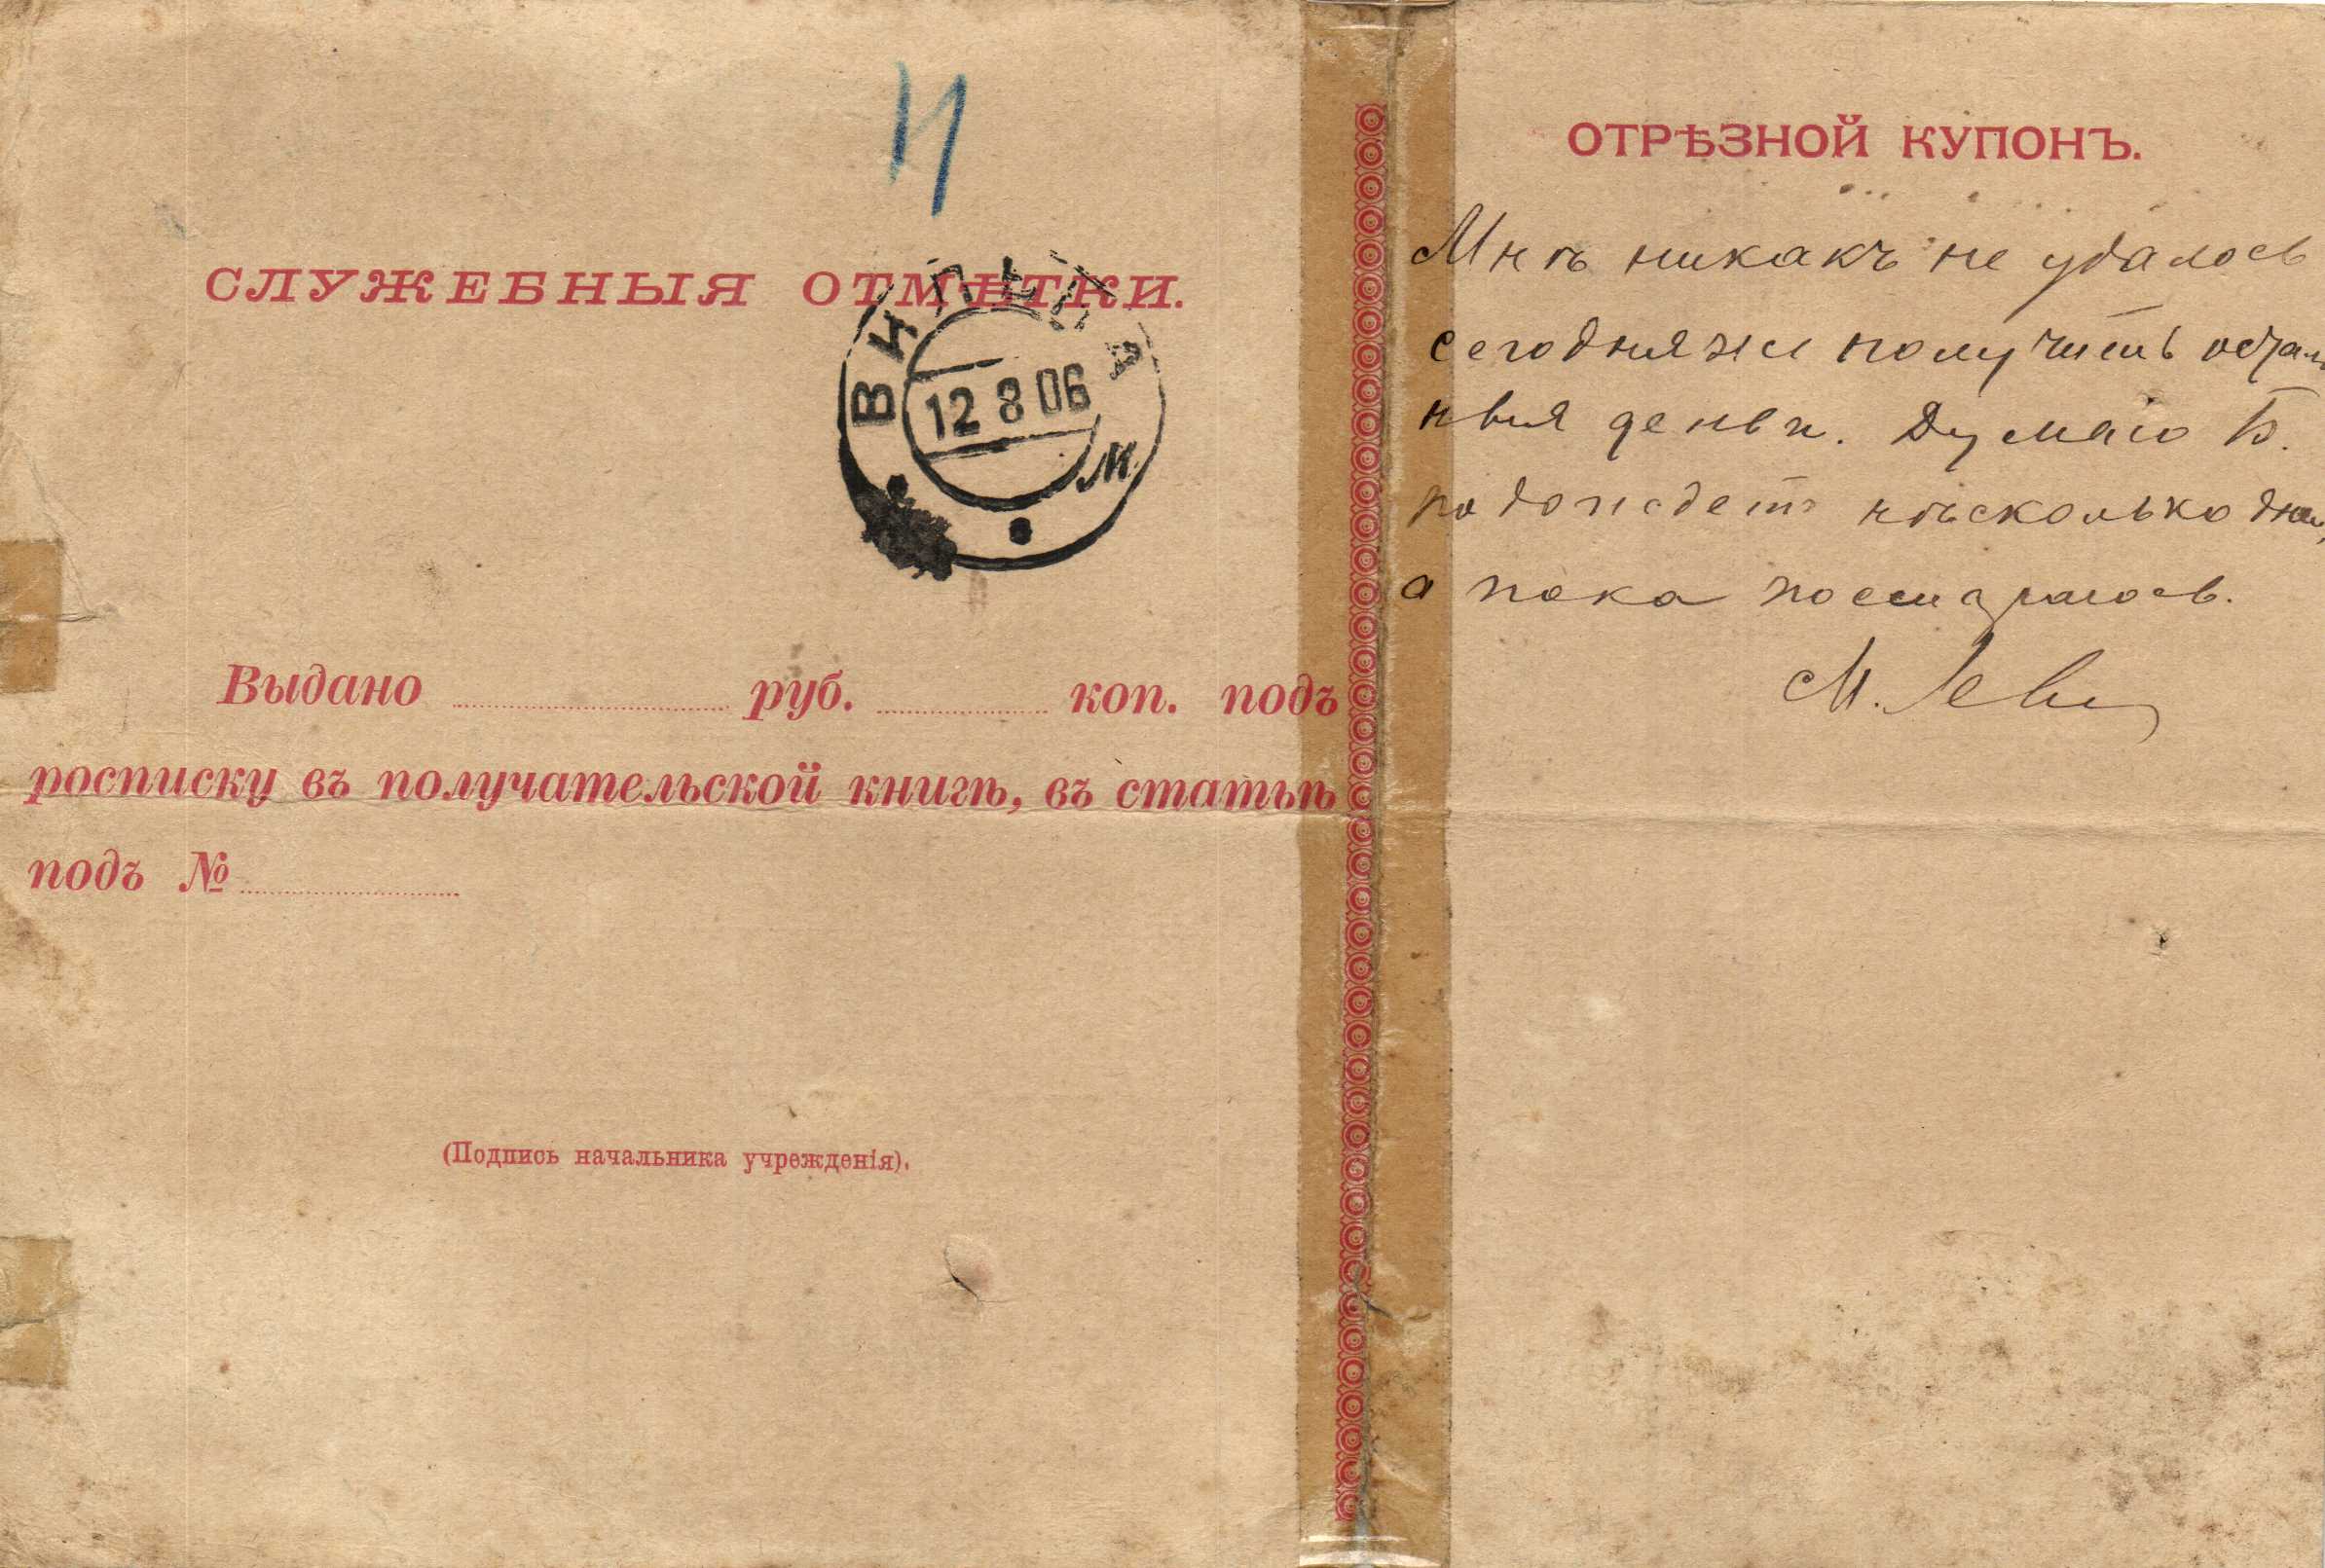 СЛУЖЕБНЫЯ ОТМѢТКИ.
ВИЛЬНА
12 8 06
Выдано руб. коп. подъ
росписку въ получательской книгѣ, въ статьѣ
подъ №
(Подпись начальника учрежденія).
ОТРѢЗНОЙ КУПОНЪ.
Мнѣ никакъ не удалось
сегодня же получить осталь
ныя деньги. Думаю Б.
подождетъ нѣсколько дней,
а пока постараюсь.
М. Леви